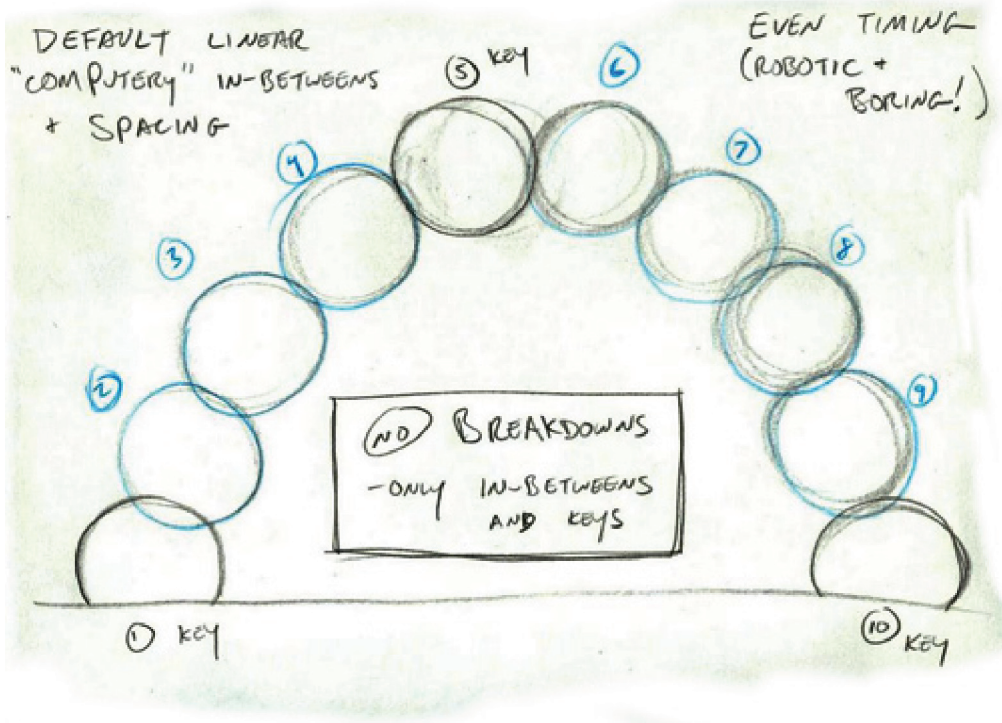 DEFAULT LINEAR
"COMPUTERY" IN-BETWEENS
+ SPACING
EVEN TIMING
(ROBOTIC +
BORING!)
5 KEY
6
4
7
3
8
2
9
NO BREAKDOWNS
-ONLY IN-BETWEENS
AND KEYS
1 KEY
10 KEY